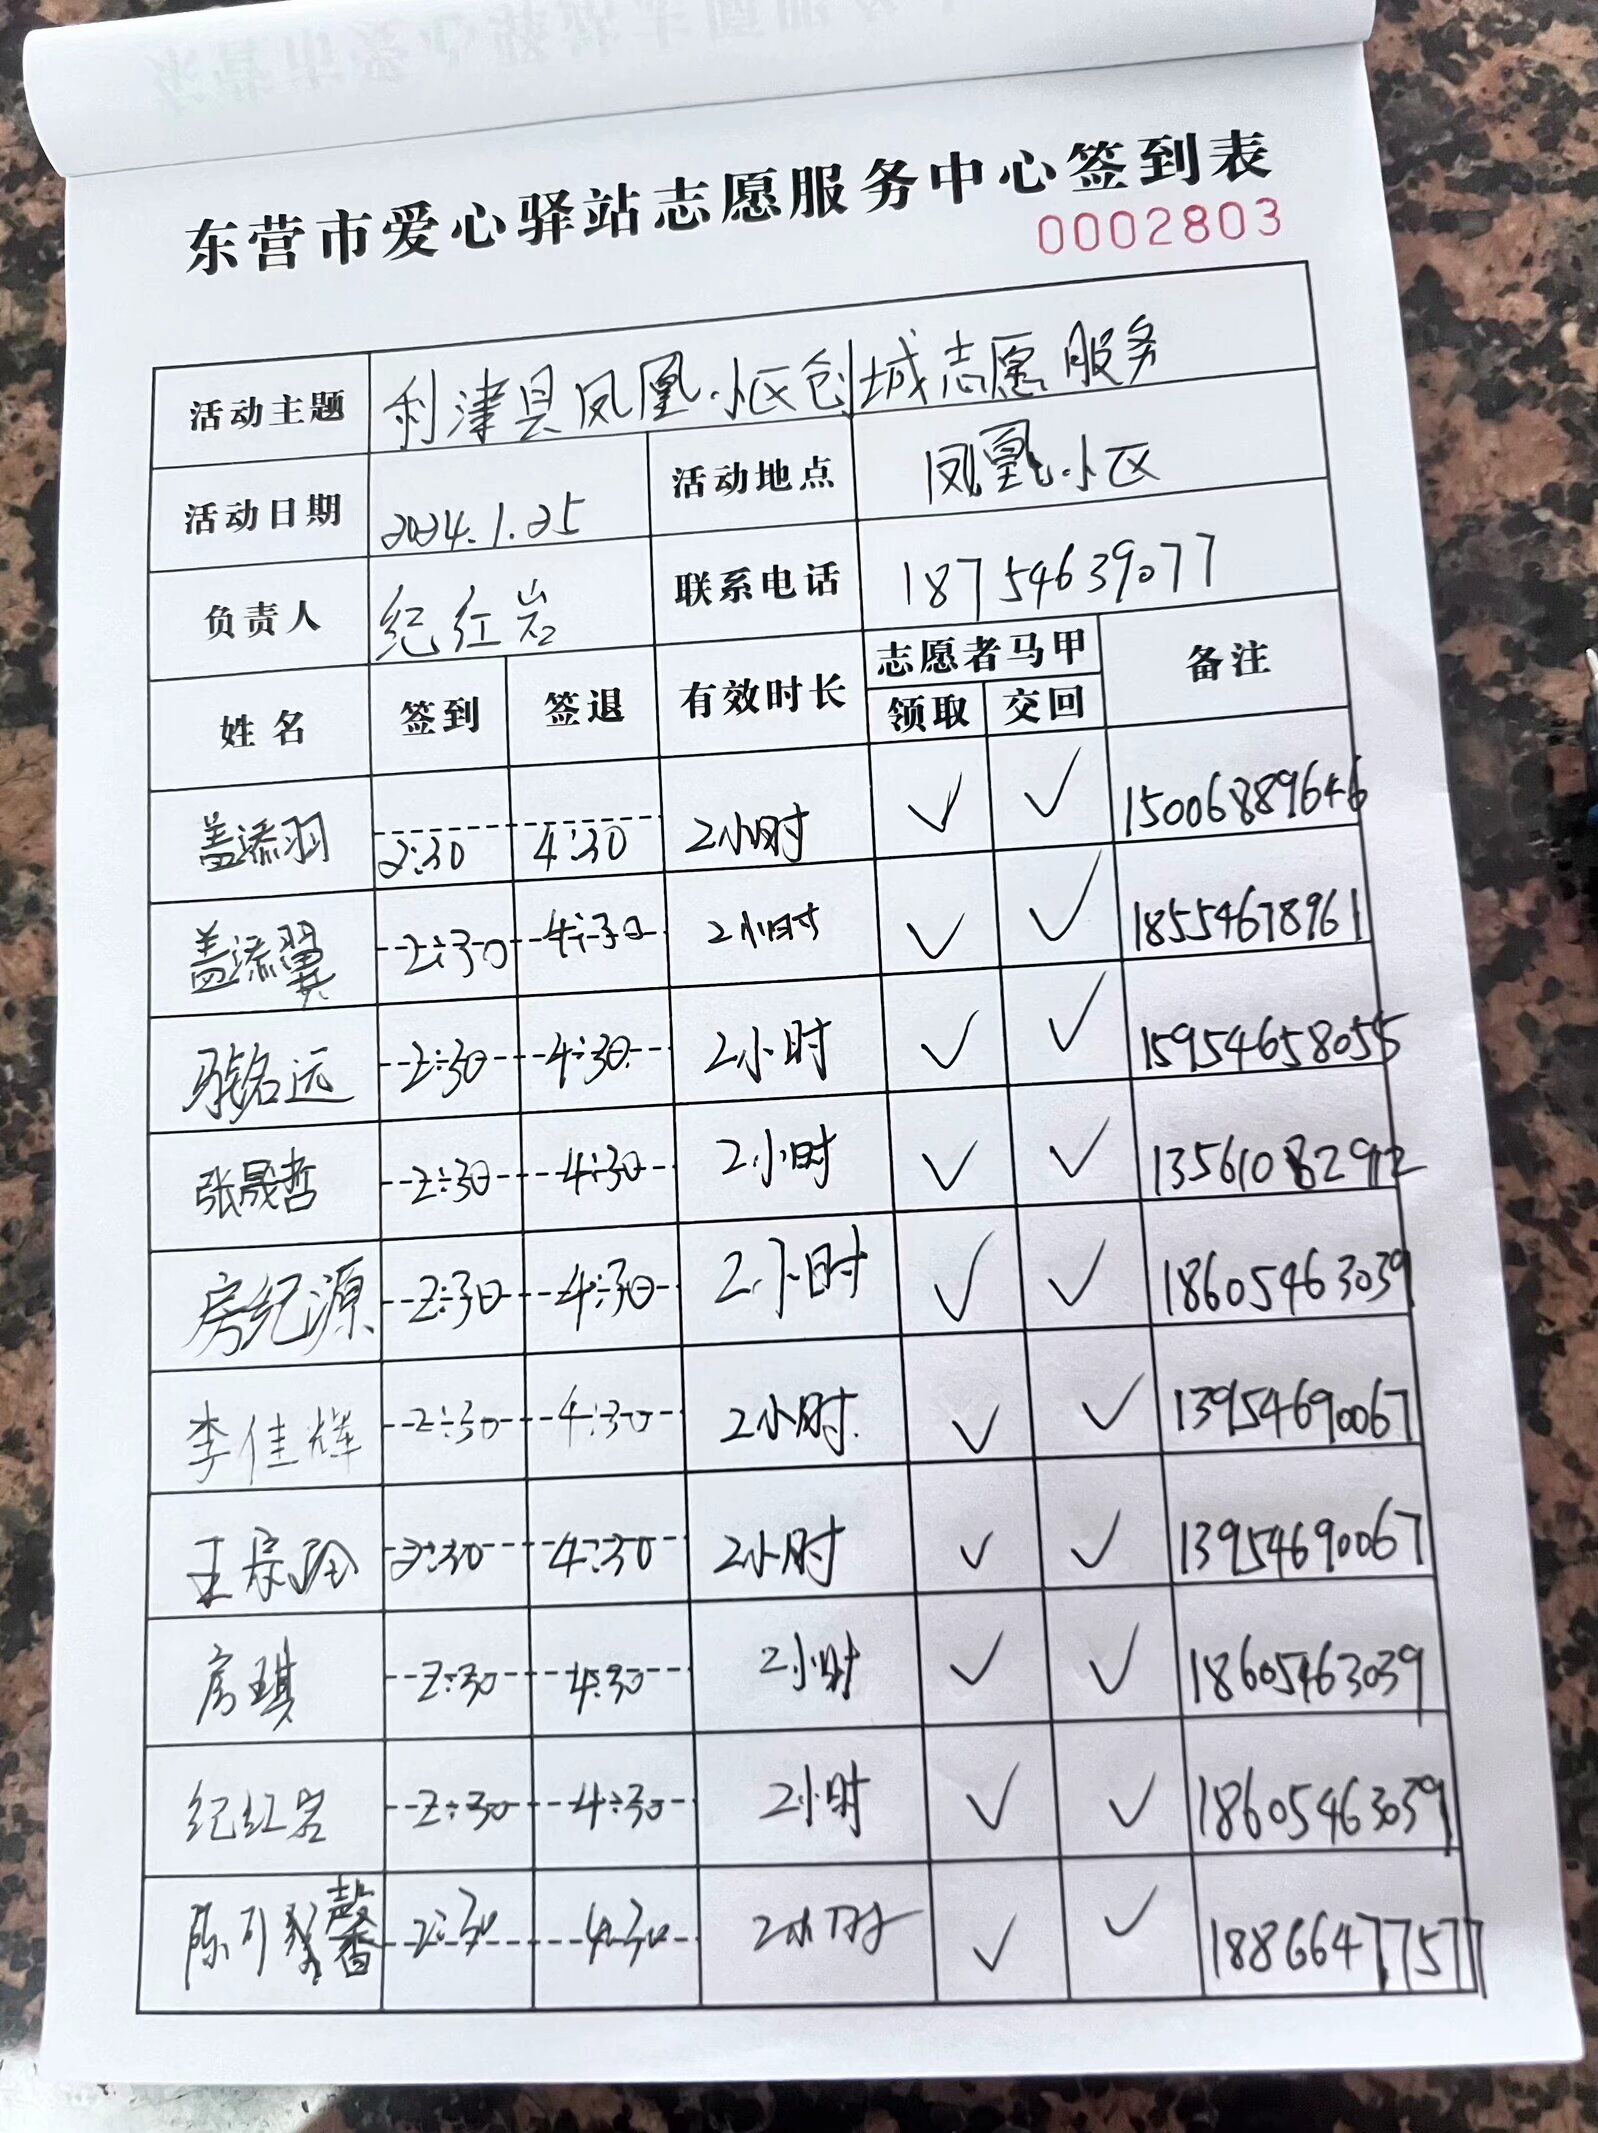 东营市爱心驿站志愿服务中心签到表
0002803
活动主题 利津县凤凰小区创城志愿服务
活动日期 2024.1.25 活动地点 凤凰小区
负责人 纪红岩 联系电话 18754639077
姓名 签到 签退 有效时长 志愿者马甲 备注
领取 交回
盖添羽 2:30 4:30 2小时 ✓ ✓ 15006889646
盖添翼 2:30 4:30 2小时 ✓ ✓ 18554678961
张铭远 2:30 4:30 2小时 ✓ ✓ 15954658055
张晟哲 2:30 4:30 2小时 ✓ ✓ 13561082912
房纪源 2:30 4:30 2小时 ✓ ✓ 18605463039
李佳辉 2:30 4:30 2小时 ✓ ✓ 13954690067
王 2:30 4:30 2小时 ✓ ✓ 13954690067
房琪 2:30 4:30 2小时 ✓ ✓ 18605463039
纪红岩 2:30 4:30 2小时 ✓ ✓ 18605463039
陈可馨 2:30 4:30 2小时 ✓ ✓ 18866477577